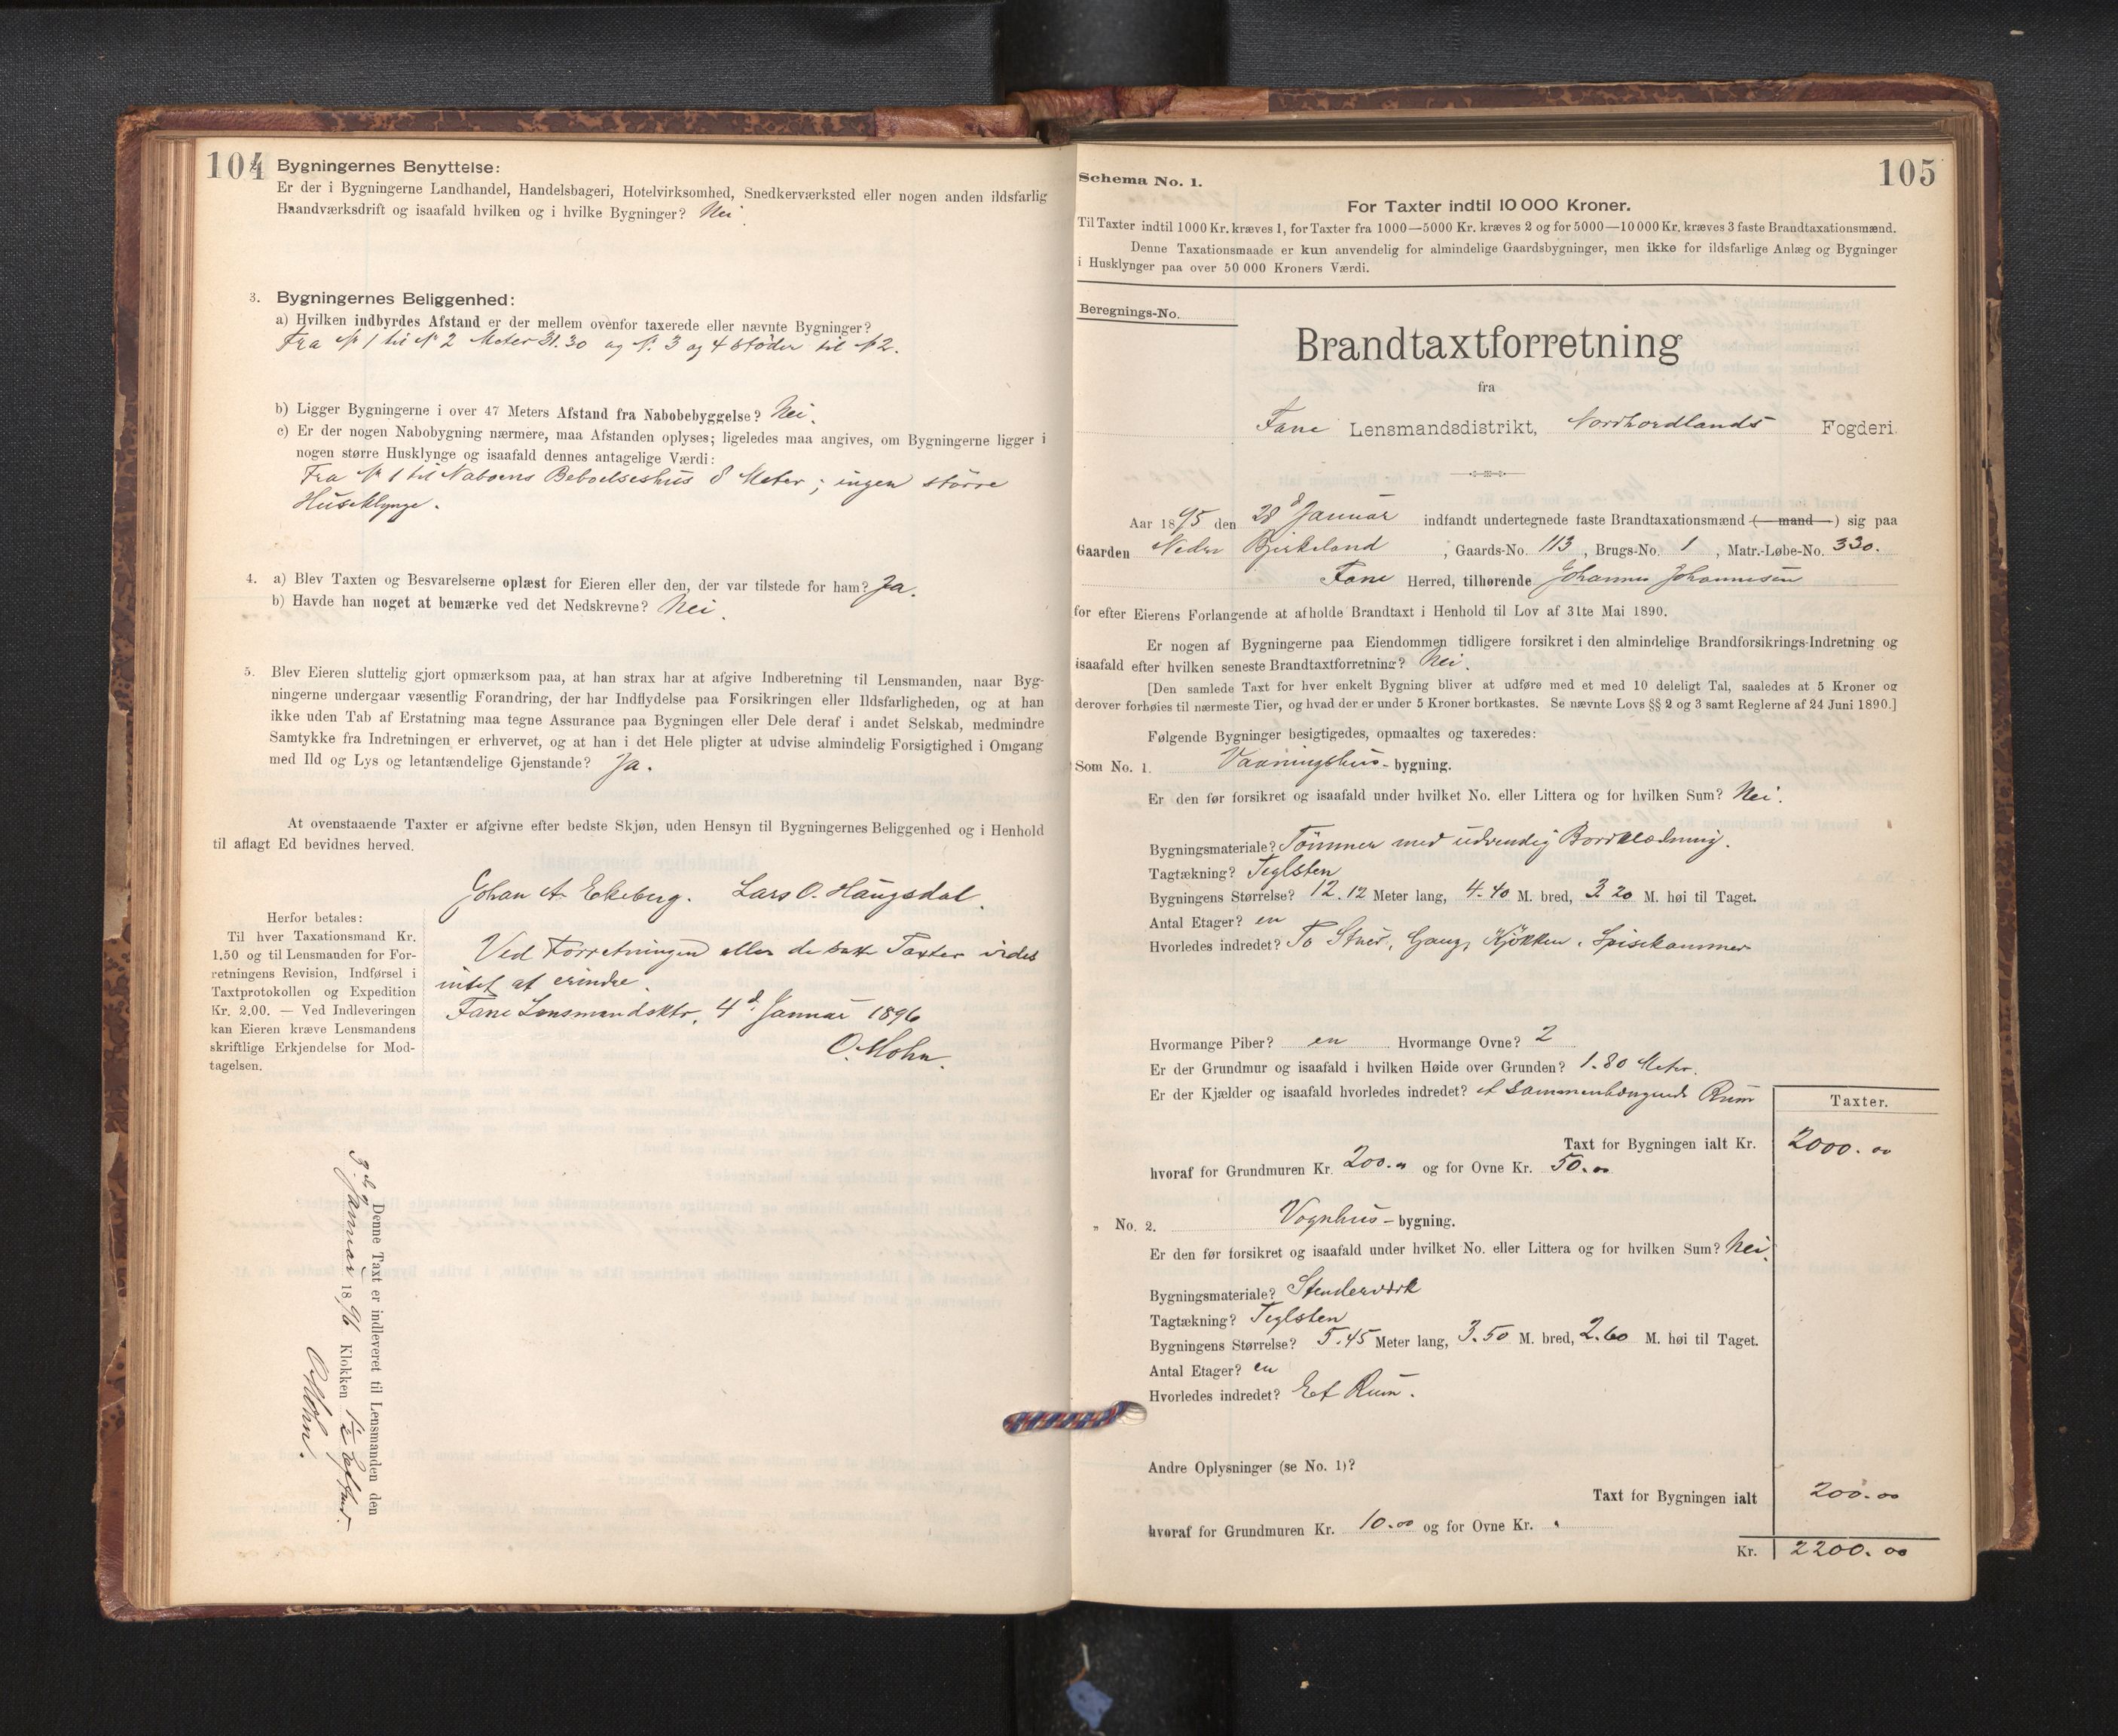 104
2. Bygningernes Benyttelse:
Er der i Bygningerne Landhandel, Handelsbageri, Hotelvirksomhed, Snedkerværksted eller nogen anden ildsfarlig
Haandværksdrift og isaafald hvilken og i hvilke Bygninger? Nei
3. Bygningernes Beliggenhed:
a) Hvilken indbyrdes Afstand er der mellem ovenfor taxerede eller nævnte Bygninger?
Fra No 1 til No 2 Meter 31.30 og No. 3 og 4 støder til No 2.
b) Ligger Bygningerne i over 47 Meters Afstand fra Nabobebyggelse? Nei.
c) Er der nogen Nabobygning nærmere, maa Afstanden oplyses; ligeledes maa angives, om Bygningerne ligger i
nogen større Husklynge og isaafald dennes antagelige Værdi:
Fra No 1 til Naboens Beboelseshus 8 Meter; ingen større
Husklynge.
4. a) Blev Taxten og Besvarelserne oplæst for Eieren eller den, der var tilstede for ham? Ja.
b) Havde han noget at bemærke ved det Nedskrevne? Nei.
5. Blev Eieren sluttelig gjort opmærksom paa, at han strax har at afgive Indberetning til Lensmanden, naar Byg-
ningerne undergaar væsentlig Forandring, der har Indflydelse paa Forsikringen eller Ildsfarligheden, og at han
ikke uden Tab af Erstatning maa tegne Assurance paa Bygningen eller Dele deraf i andet Selskab, medmindre
Samtykke fra Indretningen er erhvervet, og at han i det Hele pligter at udvise almindelig Forsigtighed i Omgang
med Ild og Lys og letantændelige Gjenstande? Ja.
At ovenstaaende Taxter er afgivne efter bedste Skjøn, uden Hensyn til Bygningernes Beliggenhed og i Henhold
til aflagt Ed bevidnes herved.
Johan A. Eikeberg. Lars O. Haugsdal.
Herfor betales:
Til hver Taxationsmand Kr.
1.50 og til Lensmanden for For-
retningens Revision, Indførsel i
Taxtprotokollen og Expedition
Kr. 2.00. — Ved Indleveringen
kan Eieren kræve Lensmandens
skriftlige Erkjendelse for Mod-
tagelsen.
Ved Forretningen eller de satte Taxter vides
intet at erindre.
Fane Lensmandsktr. 4d Januar 1896
O. Mohn.
Denne Taxt er indleveret til Lensmanden den
3de Januar 1896 Klokken 1½ Efterm.
O. Mohn.
105
Schema No. 1.
For Taxter indtil 10 000 Kroner.
Til Taxter indtil 1000 Kr. kræves 1, for Taxter fra 1000—5000 Kr. kræves 2 og for 5000—10 000 Kr. kræves 3 faste Brandtaxationsmænd.
Denne Taxationsmaade er kun anvendelig for almindelige Gaardsbygninger, men ikke for ildsfarlige Anlæg og Bygninger
i Husklynger paa over 50 000 Kroners Værdi.
Beregnings-No.
Brandtaxtforretning
fra
Fane Lensmandsdistrikt, Nordhordlands Fogderi
Aar 1895 den 28d Januar indfandt undertegnede faste Brandtaxationsmænd (— mand —) sig paa
Gaarden Nedre Birkeland, Gaards-No. 113, Brugs-No. 1, Matr.-Løbe-No. 330.
Fane Herred, tilhørende Johannes Johannesen
for efter Eierens Forlangende at afholde Brandtaxt i Henhold til Lov af 31te Mai 1890.
Er nogen af Bygningerne paa Eiendommen tidligere forsikret i den almindelige Brandforsikrings-Indretning og
isaafald efter hvilken seneste Brandtaxtforretning? Nei.
[Den samlede Taxt for hver enkelt Bygning bliver at udføre med et med 10 deleligt Tal, saaledes at 5 Kroner og
derover forhøies til nærmeste Tier, og hvad der er under 5 Kroner bortkastes. Se nævnte Lovs §§ 2 og 3 samt Reglerne af 24 Juni 1890.]
Følgende Bygninger besigtigedes, opmaaltes og taxeredes:
Som No. 1. Vaaningshus-bygning.
Er den før forsikret og isaafald under hvilket No. eller Littera og for hvilken Sum? Nei.
Bygningsmateriale? Tømmer med udvendig Bordklædning.
Tagtækning? Teglsten
Bygningens Størrelse? 12.12 Meter lang, 4.40 M. bred, 3.20 M. høi til Taget.
Antal Etager? en
Hvorledes indredet? To Stuer, Gang, Kjøkken, Spisekammer
Hvormange Piber? en Hvormange Ovne? 2
Er der Grundmur og isaafald i hvilken Høide over Grunden? 1.80 Meter.
Er der Kjælder og isaafald hvorledes indredet? et sammenhængende Rum
Taxter.
Taxt for Bygningen ialt Kr. 2000.00
hvoraf for Grundmuren Kr. 200.00 og for Ovne Kr. 50.00
„ No. 2. Vognhus-bygning.
Er den før forsikret og isaafald under hvilket No. eller Littera og for hvilken Sum? Nei.
Bygningsmateriale? Stenderværk
Tagtækning? Teglsten
Bygningens Størrelse? 5.45 Meter lang, 3.50 M. bred, 2.60 M. høi til Taget.
Antal Etager? en
Hvorledes indredet? Et Rum.
Andre Oplysninger (se No. 1)?
Taxt for Bygningen ialt 200.00
hvoraf for Grundmuren Kr. 10.00 og for Ovne Kr.
Kr. 2200.00